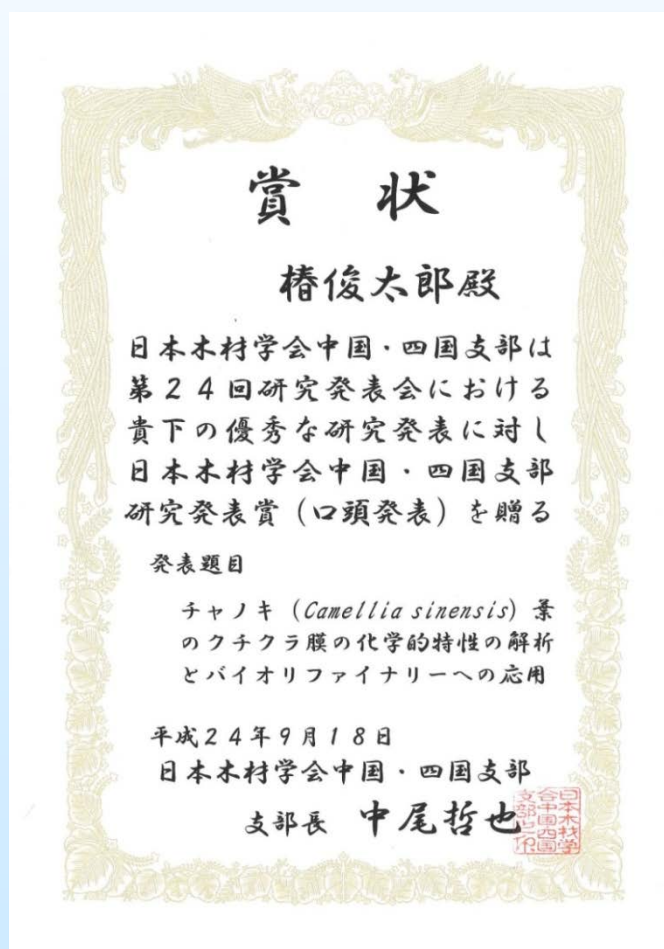 賞 状
椿俊太郎殿
日本木材学会中国・四国支部は
第24回研究発表会における
貴下の優秀な研究発表に対し
日本木材学会中国・四国支部
研究発表賞(口頭発表)を贈る
発表題目
チャノキ (Camellia sinensis) 葉
のクチクラ膜の化学的特性の解析
とバイオリファイナリーへの応用
平成24年9月18日
日本木材学会中国・四国支部
支部長 中尾哲也
日本木材学
会中国四国
支部之印